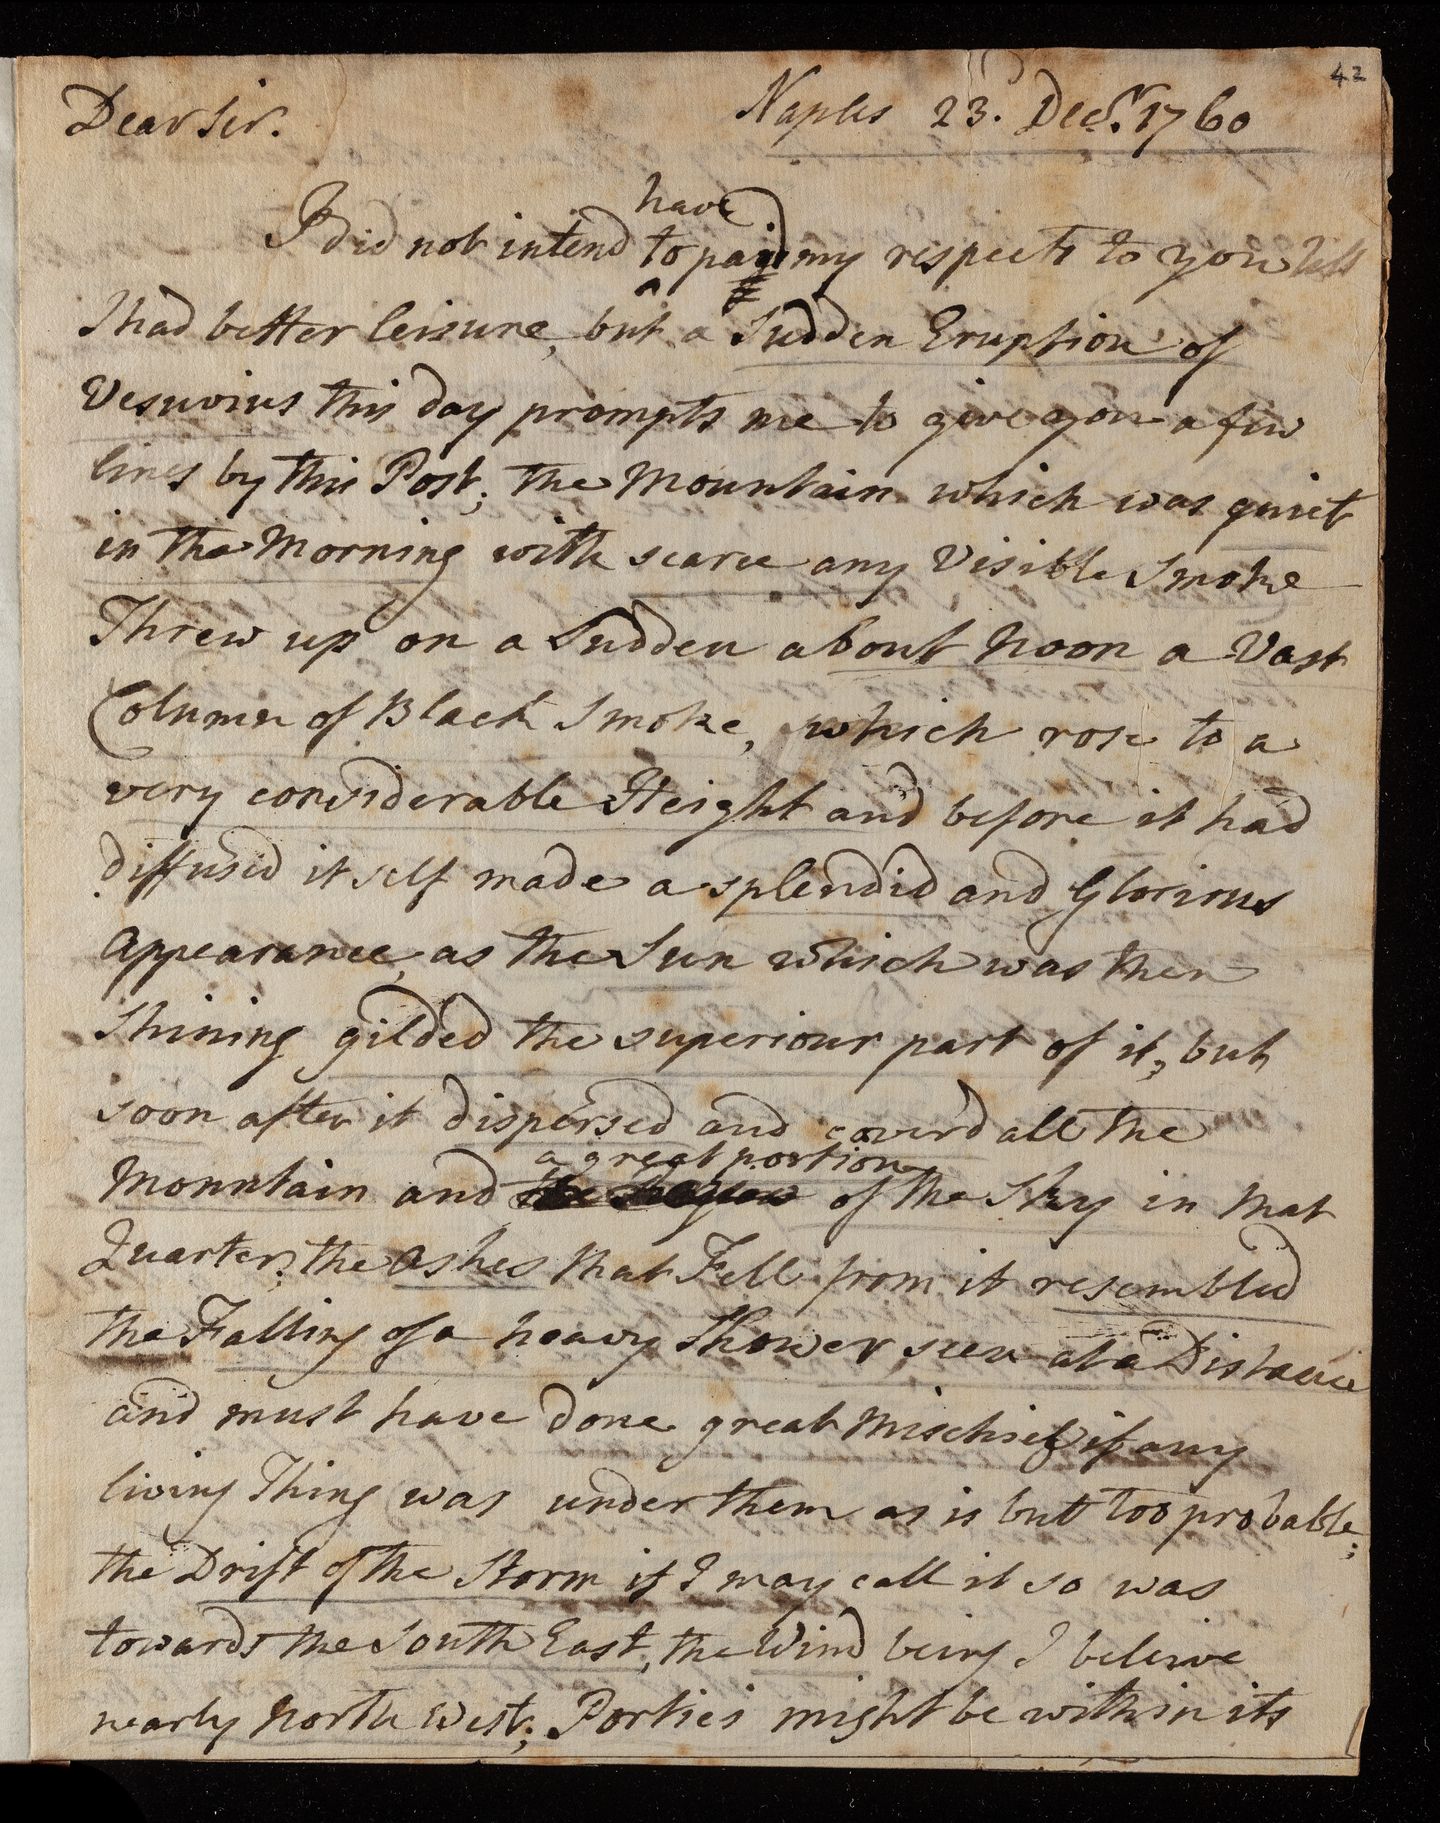 42
Dear Sir. Naples 23. Decr. 1760
have
I did not intend to paid my respects to you till
I had better leisure, but a Sudden Eruption of
Vesuvius this day prompts me to give you a few
lines by this Post; the Mountain which was quiet
in the Morning with scarce any Visible Smoke
Threw up on a Sudden about Noon a Vast
Column of Black Smoke, which rose to a
very considerable Height and before it had
diffused it self made a splendid and Glorious
Appearance, as the Sun which was then
Shining gilded the superiour part of it, but
soon after it dispersed and cover'd all the
a great portion
Mountain and of the Sky in that
Quarter, the Ashes that Fell from it resembled
the Falling of a heavy Shower seen at a Distance
and must have done great Mischief if any
living Thing was under them as is but too probable;
the Drift of the Storm if I may call it so was
towards the South East, the Wind being I beleive
nearly North West; Portici might be within its